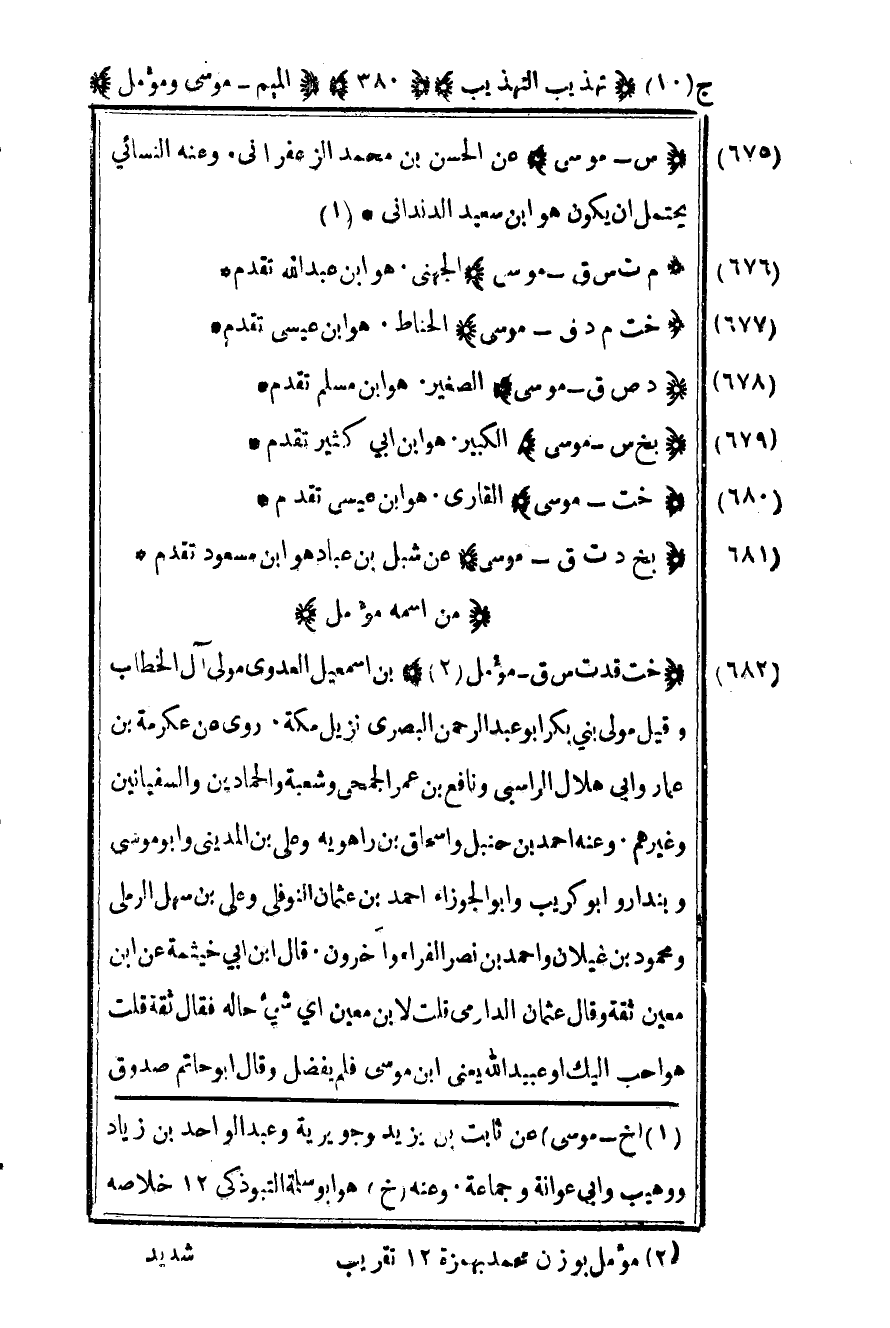 ج (١٠) ﴿ تهذيب التهذيب ﴾﴿ ٣٨٠ ﴾﴿ الميم ـ موسى ومؤمل ﴾
(٦٧٥) ﴿ س ـ موسى ﴾ عن الحسن بن محمد الزعفرانى. وعنه النسائي
يحتمل ان يكون هو ابن سعيد الدندانى * (١)
(٦٧٦) * م ت س ق ـ موسى ﴾ الجهنى. هو ابن عبدالله تقدم *
(٦٧٧) ﴿ خت م د ق ـ موسى ﴾ الحناط. هو ابن عيسى تقدم *
(٦٧٨) ﴿ د ص ق ـ موسى ﴾ الصغير. هو ابن مسلم تقدم *
(٦٧٩) ﴿ بخ س ـ موسى ﴾ الكبير. هو ابن ابي كثير تقدم *
(٦٨٠) ﴿ خت ـ موسى ﴾ القارى. هو ابن عيسى تقدم *
٦٨١) ﴿ بخ د ت ق ـ موسى ﴾ عن شبل بن عباد هو ابن مسعود تقدم *
﴿ من اسمه مؤمل ﴾
(٦٨٢) ﴿ خت قد ت س ق ـ مؤمل (٢) ﴾ بن اسمعيل العدوى مولى آل الخطاب
و قيل مولى بني بكر ابو عبد الرحمن البصرى نزيل مكة. روى عن عكرمة بن
عمار وابي هلال الراسبى ونافع بن عمر الجمحى وشعبة والحمادين والسفيانين
وغيرهم. وعنه احمد بن حنبل واسحاق بن راهويه وعلى بن المدينى وابو موسى
و بندار و ابو كريب وابو الجوزاء احمد بن عثمان النوفلى وعلى بن سهل الرملى
ومحمود بن غيلان واحمد بن نصر الفراء وآخرون. قال ابن ابي خيثمة عن ابن
معين ثقة وقال عثمان الدارمى قلت لابن معين اي شيء حاله فقال ثقة قلت
هو احب اليك او عبيد الله يعنى ابن موسى فلم يفضل وقال ابو حاتم صدوق
(١) (خ ـ موسى) عن ثابت بن يزيد وجويرية وعبد الواحد بن زياد
ووهيب وابي عوانة و جماعة. وعنه (خ) هو ابو سلمة التبوذكي ١٢ خلاصه
(٢) مؤمل بوزن محمد بهمزة ١٢ تقريب شديد